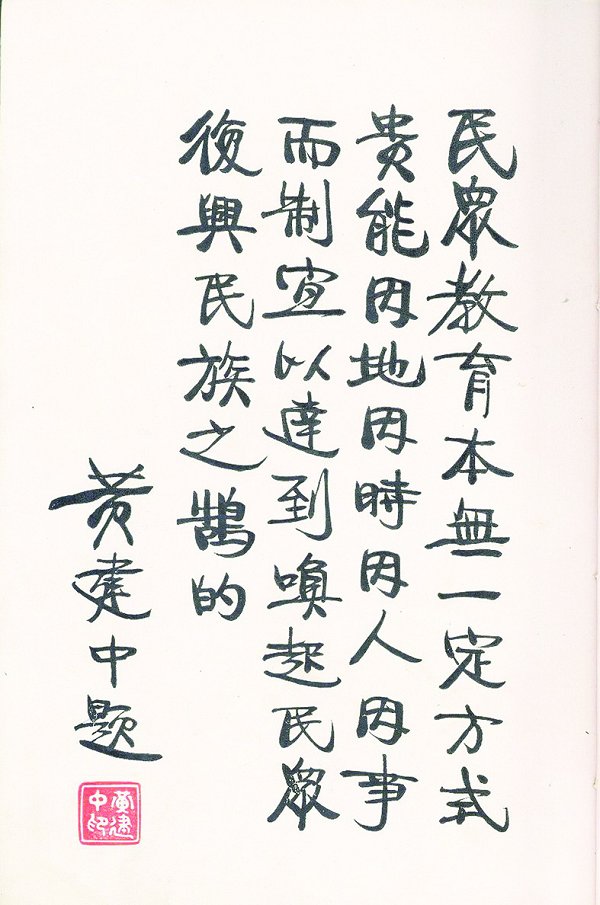 民眾教育本無一定方式
貴能因地因時因人因事
而制宜以達到喚起民眾
復興民族之鵠的
黃建中題
黃建中印